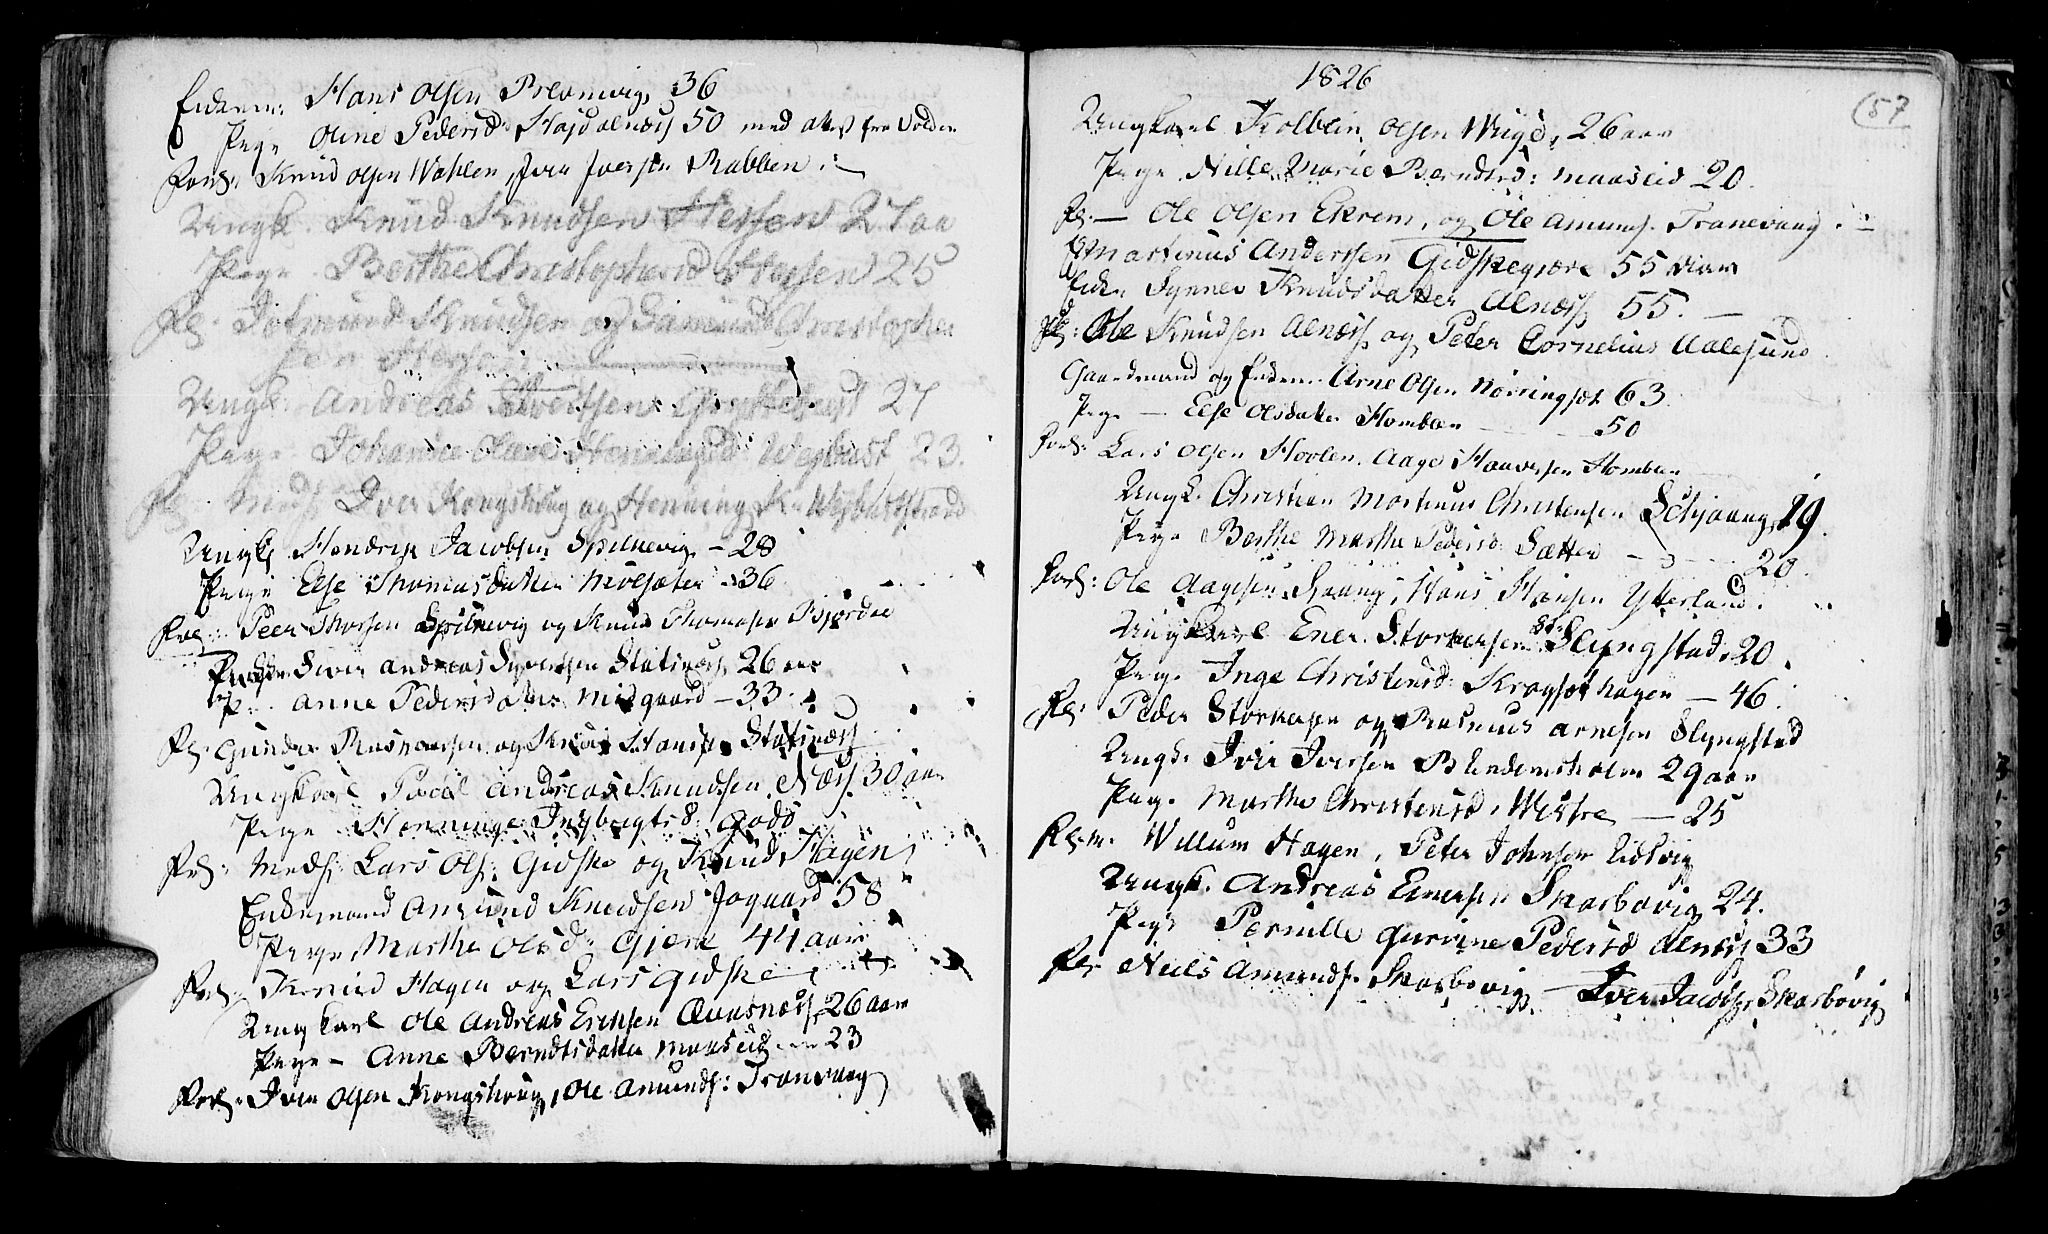 Enkem: Hans Olsen Breivevig 36
Pige Oline Pedersd: Hasdalnæss 50 med attest fra Volden
Forl: Knud Olsen Wahlen, Iver Iversen Rabben
Ungk. Knud Knudsen Hessen 27 aa
Pige Berthe Christophersd Hessen 25
Fl. Jetmund Knudsen og Samund Christopher
sen Hessen
Ungk: Andreas Sivertsen 27
Pige Johanne Olave Henningsd Wegsust 23.
Fl. Iver Kongshoug og Henning K. Wegsust
Ungk Hendrik Jacobsen Spilkevig - 28
Pige Else Thomasdatter Molsæter 36
Forl: Peer Thorsen Spilkevig og Knud Thomasen Bjørdal
Siver Andreas Syvertsen Statsnæss 26 aar
P. Anne Pedersdatter Misgaard - 33.
Fl. Gunder Rasmussen og Knud Hansen Statsnæss
Ungkarl Poul Andreas Knudsen Næss 30 aar
Pige Henninge Ingbrgtsd: Godø
Fl: Meds: Lars Ols: Gidske og Knud Hagen
Enkemand Amund Knudsen Jogaard 58
Pige Marthe Olsd: Gjere 44 aar
Forl. Knud Hagen og Lars Gidske
Ungkarl Ole Andreas Ericksen Qvasnæss 26 aar
Pige - Anne Berndtsdatter Maaseid 23
Forl. Iver Olsen Kongshoug, Ole Amunds: Tranvaag
1826
(57
Ungkarl Kolbein Olsen Wiige, 26 aar
Pige Nille Marie Berndtsd: Maaseid 20.
Fl. - Ole Olsen Ekrem, og Ole Amunds. Tranevaag
Martinus Anderssen Gidskegjære 55
Enke Synnev Knudsdatter Alnæss 55. -
Fl: Ole Knudsen Alnæss og Peter Cornelius Aalesund
Gaardmand og Enkem. Arne Olsen Nørringsæt 63
Pige - Else Olsdatter Humblen 50
Forl: Lars Olsen Hovlen. Aage Haavorsen Humblen
Ungk. Christian Martinus Christensen Schjaang 19.
Pige Berthe Marthe Pedersd: Sætter - 20.
Forl: Ole Aagesen Skaang, Hans Hansen Ytterland.
Ungkarl Ener Storkersen St: Slyngstad 20.
Pige Inge Christensd: Kragsethagen - 46.
Fl: Peder Storkersen og Rasmus Arnesen Slyngstad
Ungk. Iver Iversen Blindemsholm 29 aar
Pige Marthe Christensd, Westre - 25
Fl. m. Willum Hagen, Peter Johnsen Eidsvig
Ungk. Andreas Enersen Skarbøvig 24.
Pige Pernille Gurine Pedersd Alnæss 33
Fl. Niels Amunds: Skarbøvig - Iver Jacobs: Skarbøvig